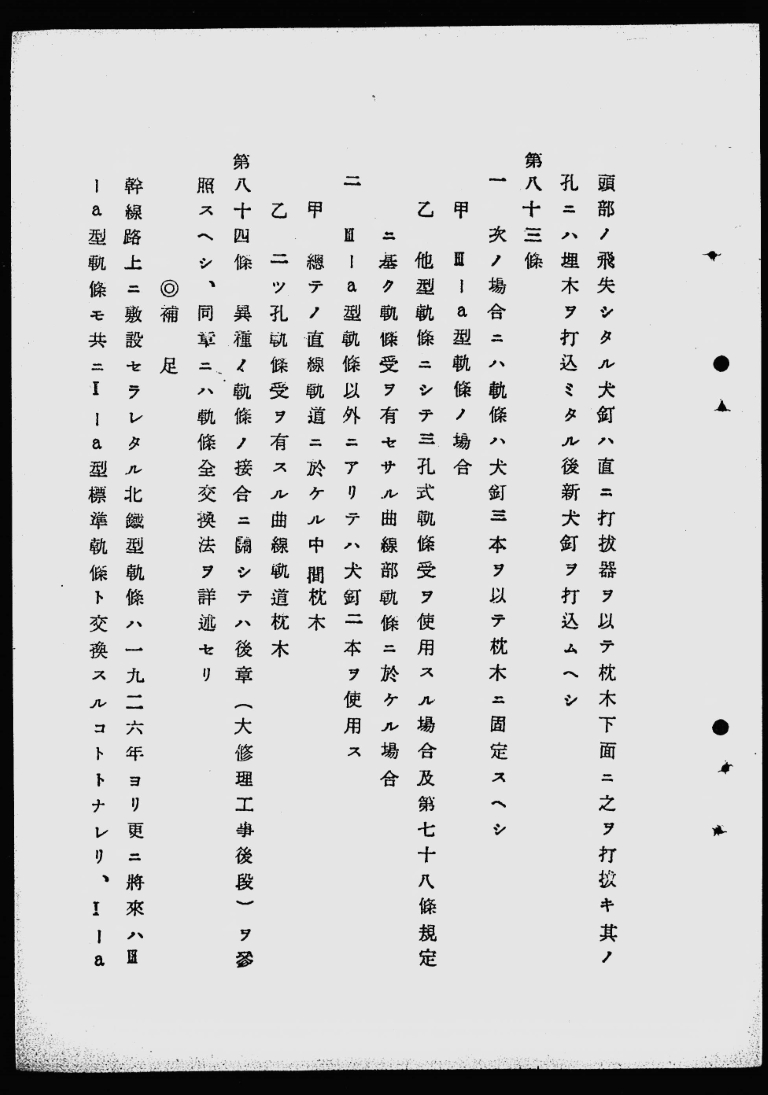 頭部ノ飛失シタル犬釘ハ直ニ打拔器ヲ以テ枕木下面ニ之ヲ打拔キ其ノ
孔ニハ埋木ヲ打込ミタル後新犬釘ヲ打込ムヘシ
第八十三條
一　次ノ場合ニハ軌條ハ犬釘三本ヲ以テ枕木ニ固定スヘシ
甲　Ⅲーa型軌條ノ場合
乙　他型軌條ニシテ三孔式軌條受ヲ使用スル場合及第七十八條規定
ニ基ク軌條受ヲ有セサル曲線部軌條ニ於ケル場合
二　Ⅲーa型軌條以外ニアリテハ犬釘二本ヲ使用ス
甲　總テノ直線軌道ニ於ケル中間枕木
乙　二ツ孔軌條受ヲ有スル曲線軌道枕木
第八十四條　異種ノ軌條ノ接合ニ關シテハ後章（大修理工事後段）ヲ參
照スヘシ、同章ニハ軌條全交換法ヲ詳述セリ
◎補足
幹線路上ニ敷設セラレタル北鐵型軌條ハ一九二六年ヨリ更ニ將來ハⅢ
ーa型軌條モ共ニⅠーa型標準軌條ト交換スルコトトナレリ、Ⅰーa